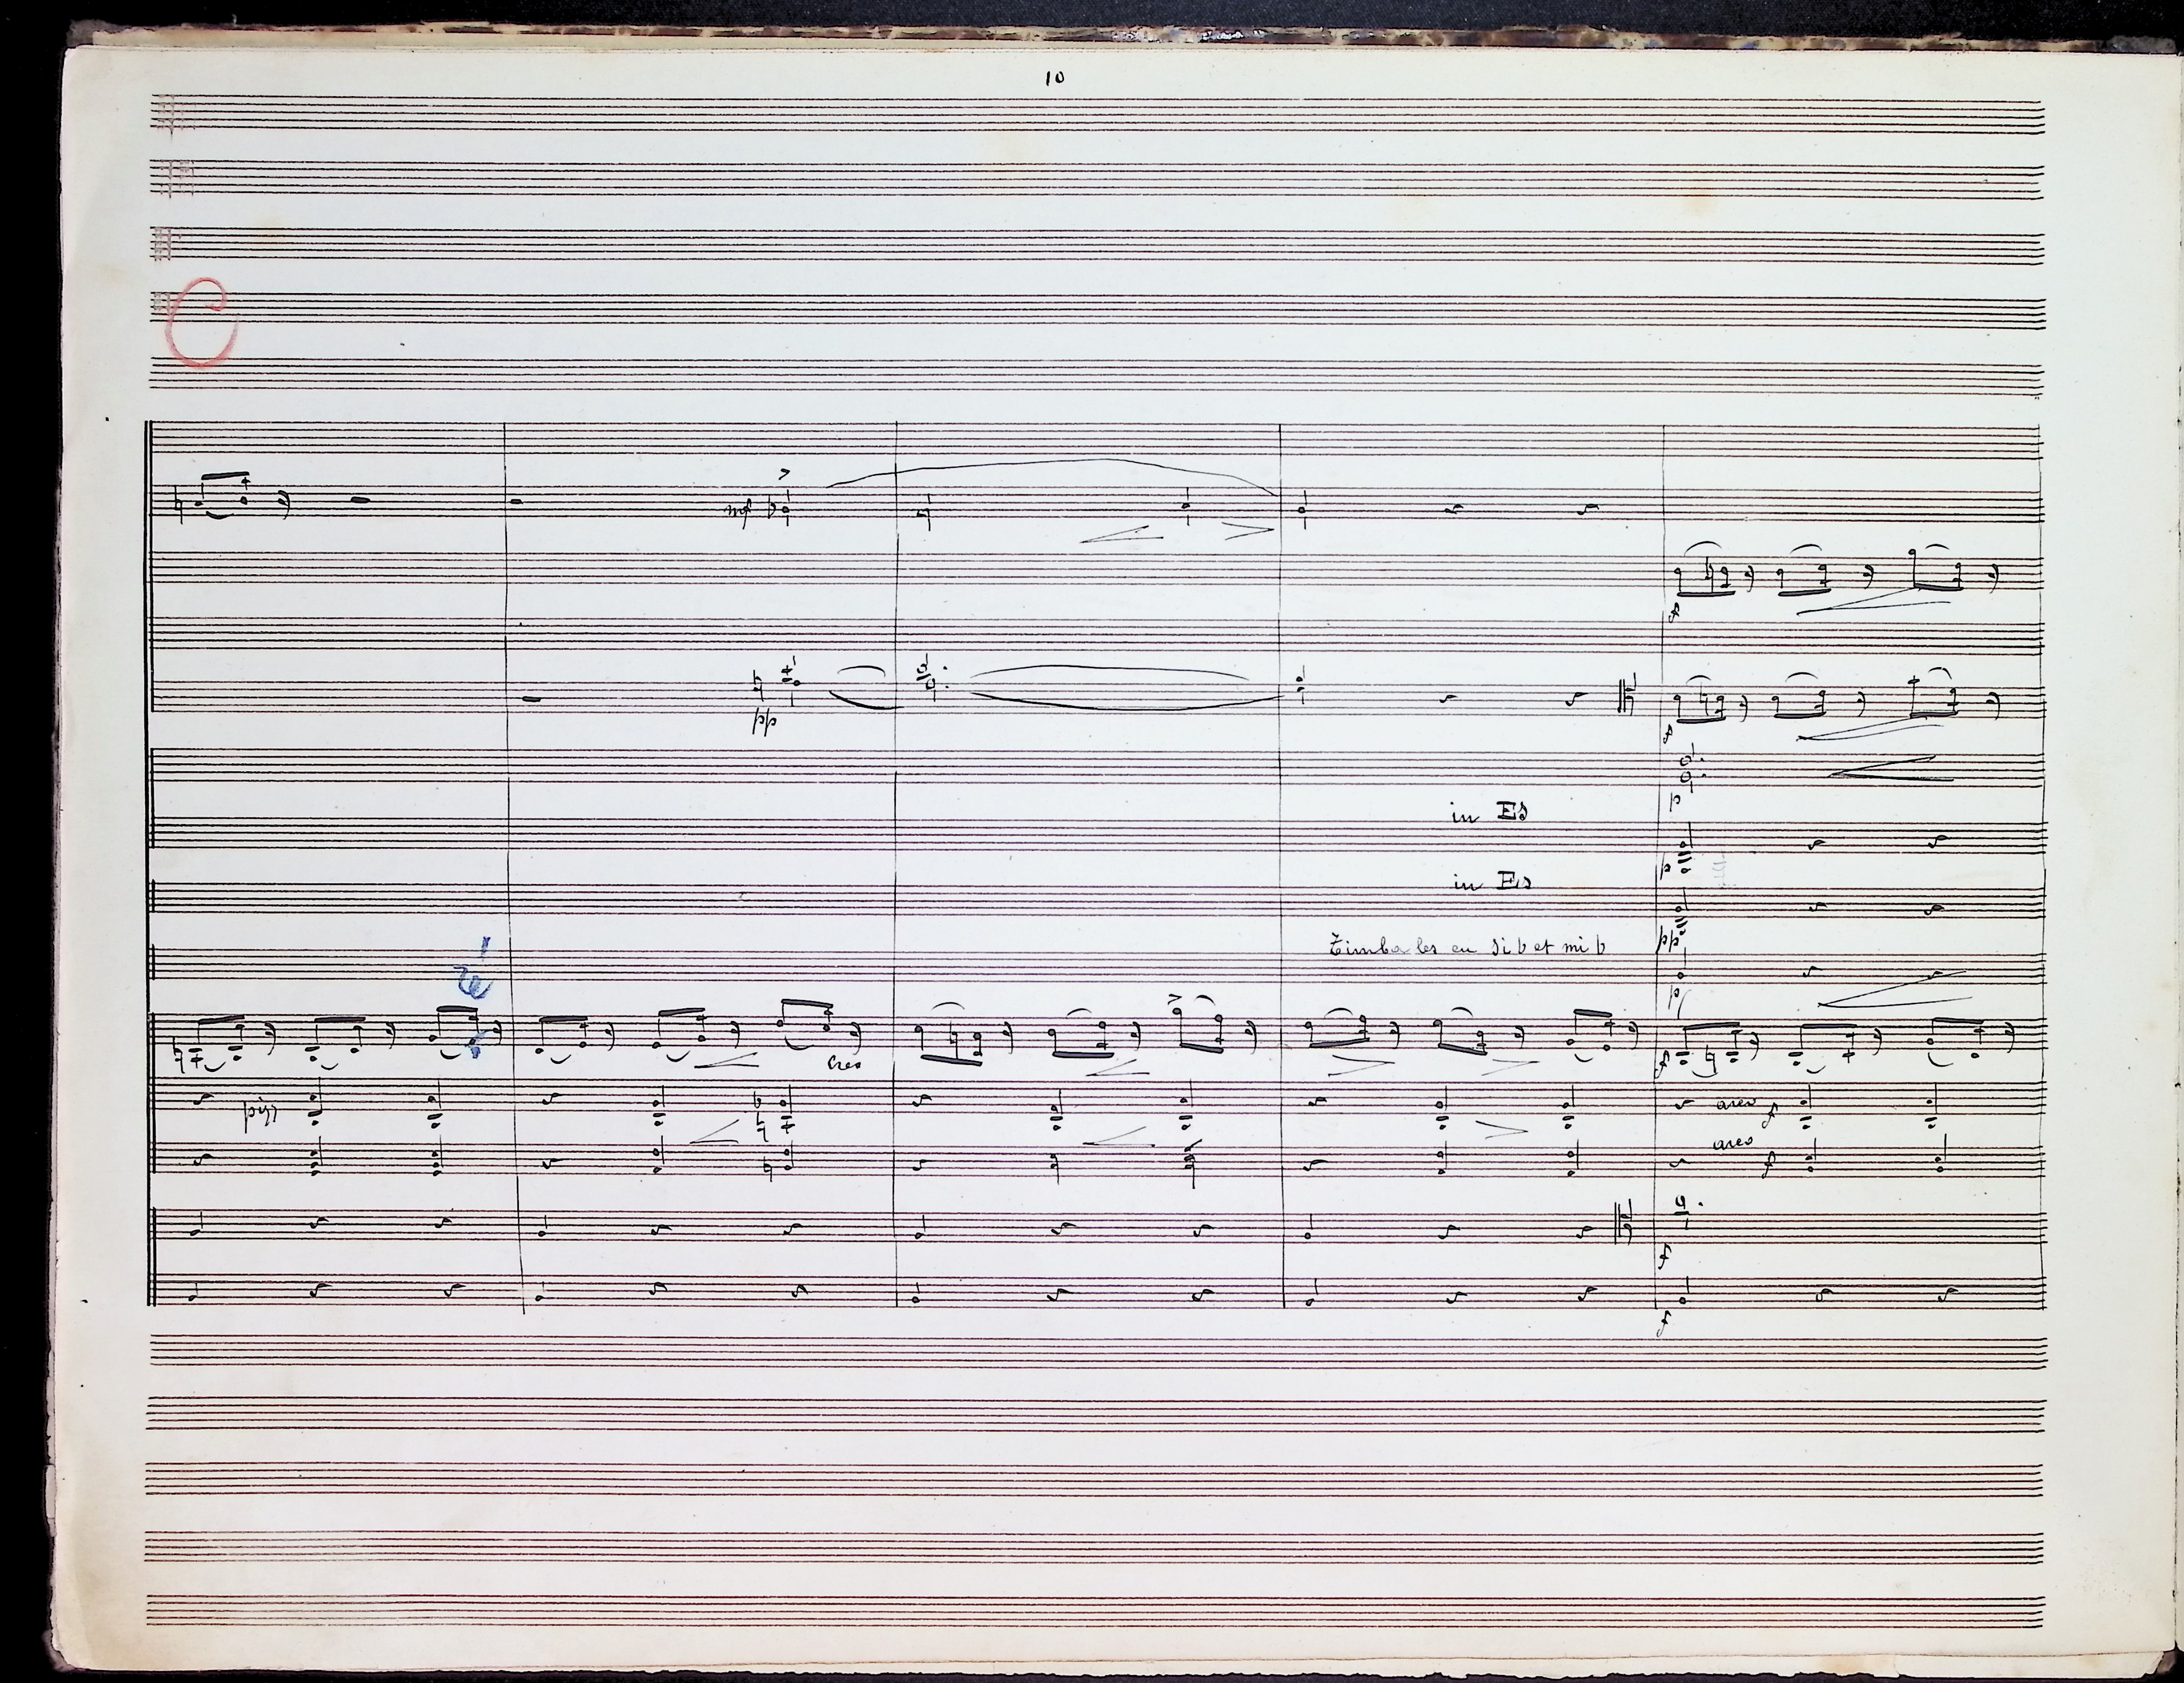 10
C
mf
f
pp
f
p
in Es
p
in Es
pp
Timbales en si b et mi b
p
cres
f
pizz
arco f
arco
f
f
f